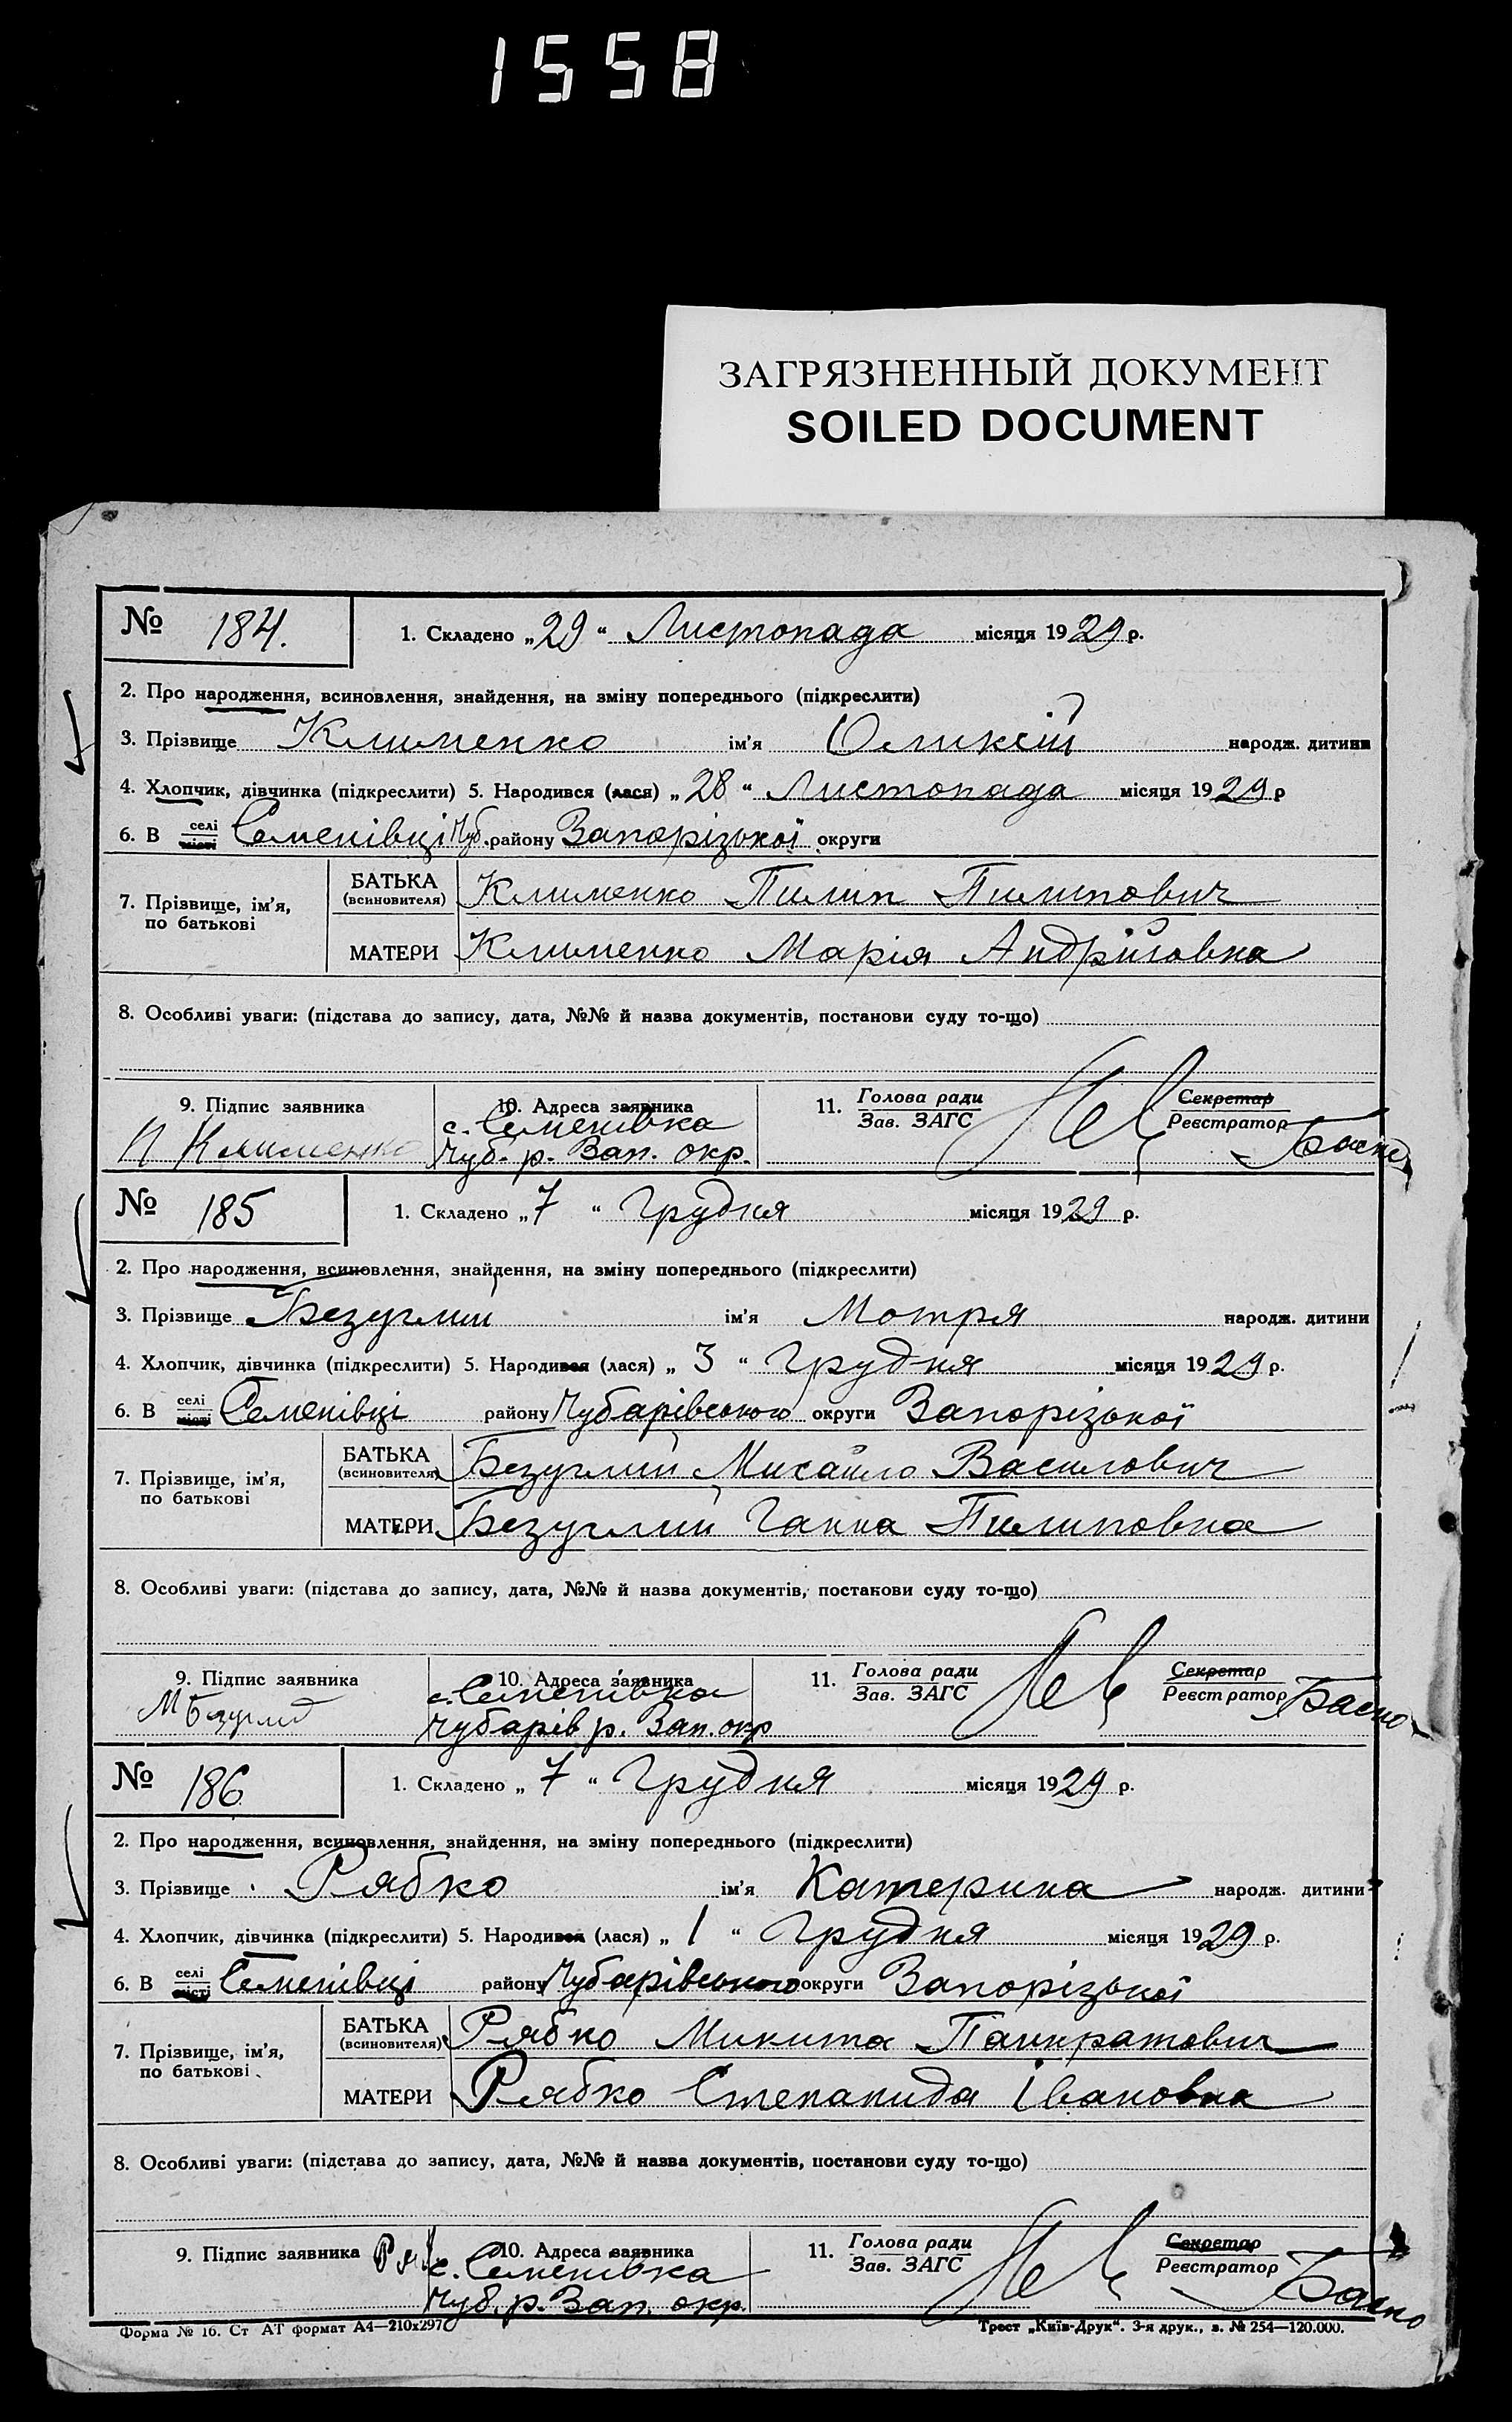 1558
ЗАГРЯЗНЕННЫЙ ДОКУМЕНТ
SOILED DOCUMENT
№ 184. 1. Складено „29“ Листопада місяця 1929 р.
2. Про народження, всиновлення, знайдення, на зміну попереднього (підкреслити)
3. Прізвище Клименко ім'я Оликсій народж. дитини
4. Хлопчик, дівчинка (підкреслити) 5. Народився (лася) „28“ Листопада місяця 1929 р
6. В селі місті Семенівці Чуб. району Запорізької округи
7. Прізвище, ім'я, по батькові БАТЬКА (всиновителя) Клименко Пилип Пилипович
МАТЕРИ Клименко Марія Андріївна
8. Особливі уваги: (підстава до запису, дата, №№ й назва документів, постанови суду то-що)
9. Підпис заявника 10. Адреса заявника 11. Голова ради Зав. ЗАГС Секретар Реєстратор
П Клименко с. Семенівка
Чуб. р. Зап. окр.
№ 185 1. Складено „7“ Грудня місяця 1929 р.
2. Про народження, всиновлення, знайдення, на зміну попереднього (підкреслити)
3. Прізвище Безуглий ім'я Мотря народж. дитини
4. Хлопчик, дівчинка (підкреслити) 5. Народився (лася) „3“ Грудня місяця 1929 р.
6. В селі місті Семенівці району Чубарівського округи Запорізької
7. Прізвище, ім'я, по батькові БАТЬКА (всиновителя) Безуглий Михайло Василович
МАТЕРИ Безуглий Ганна Пилиповна
8. Особливі уваги: (підстава до запису, дата, №№ й назва документів, постанови суду то-що)
9. Підпис заявника 10. Адреса заявника 11. Голова ради Зав. ЗАГС Секретар Реєстратор
М Безуглий с. Семенівка
Чубарів р. Зап. окр
№ 186 1. Складено „7“ Грудня місяця 1929 р.
2. Про народження, всиновлення, знайдення, на зміну попереднього (підкреслити)
3. Прізвище Рябко ім'я Катерина народж. дитини
4. Хлопчик, дівчинка (підкреслити) 5. Народився (лася) „1“ Грудня місяця 1929 р.
6. В селі місті Семенівці району Чубарівського округи Запорізької
7. Прізвище, ім'я, по батькові БАТЬКА (всиновителя) Рябко Микита Панкратович
МАТЕРИ Рябко Степанида Івановна
8. Особливі уваги: (підстава до запису, дата, №№ й назва документів, постанови суду то-що)
9. Підпис заявника 10. Адреса заявника 11. Голова ради Зав. ЗАГС Секретар Реєстратор
с. Семенівка
Чуб. р. Зап. окр.
Форма № 16. Ст АТ формат А4—210х297
Трест „Київ-Друк“. 3-я друк., з. № 254—120.000.